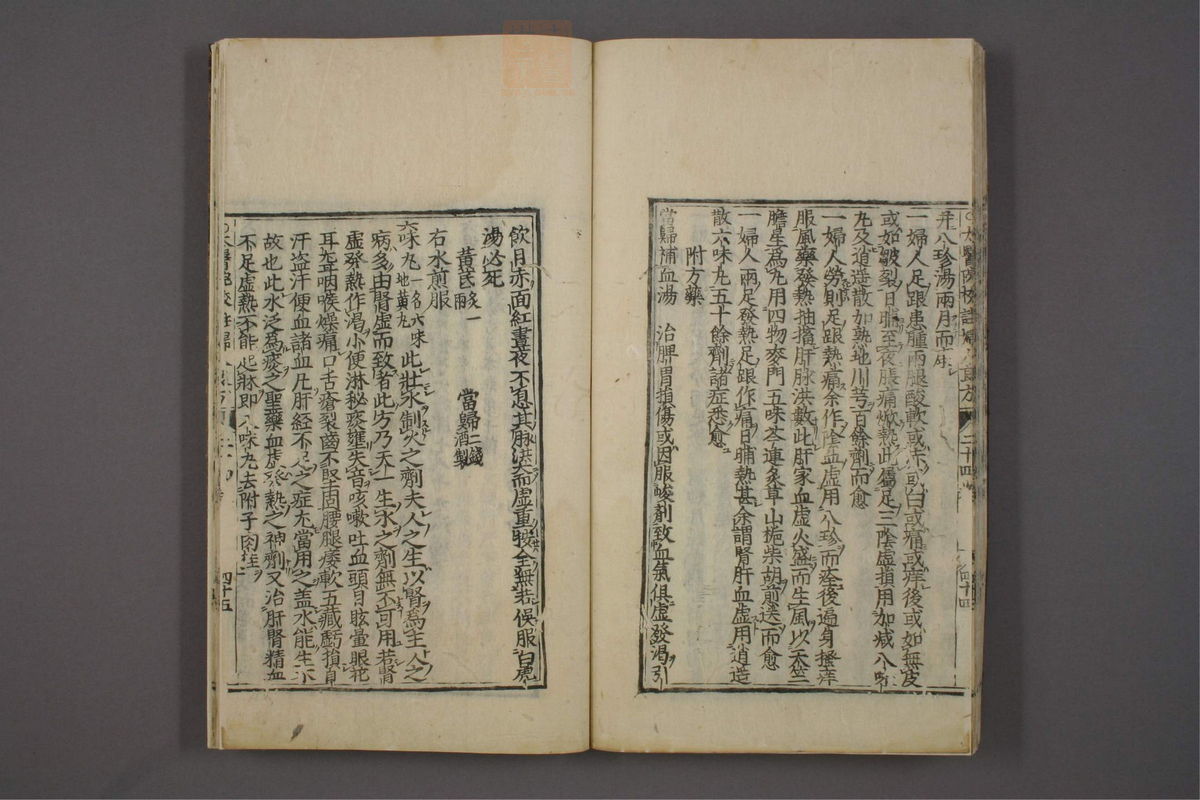 太醫院校註婦人良方 二十四 四十四
并八珍湯兩月而痊
一婦人足跟患腫兩腿酸軟或赤或白或痛或痒後或如無皮
或如皴裂日晡至夜脹痛焮熱此屬足三陰虛損用加減八味
丸及逍遥散加熟地川芎百餘劑而愈
一婦人勞則足跟熱痛余作陰血虛用八珍而痊後遍身搔痒
服風藥發熱抽搐肝脉洪數此肝家血虛火盛而生風以天竺
膽星爲丸用四物麥門五味芩連炙草山梔柴胡煎送而愈
一婦人兩足發熱足跟作痛日晡熱甚余謂腎肝血虛用逍遥
散六味丸五十餘劑諸症悉愈
附方藥
當歸補血湯 治脾胃損傷或因服峻剤致血氣俱虛發渴引
飲目赤面紅晝夜不息其脉洪大而虛重按全無若悞服白虎
湯必死
黄芪炙一兩 當歸二錢酒製
右水煎服
六味丸一名六味地黄丸 此壯水制火之劑夫人之生以腎爲主人之
病多由腎虛而致者此方乃天一生水之劑無不可用若腎
虛發熱作渴小便淋秘痰壅失音咳嗽吐血頭目眩暈眼花
耳聋咽喉燥痛口舌瘡裂齒不堅固腰腿痿軟五藏虧損自
汗盗汗便血諸血凡肝経不足之症尤當用之盖水能生木
故也此水泛爲痰之聖藥血虚發熱之神劑又治肝腎精血
不足虛熱不能起牀即八味丸去附子肉桂
四十五